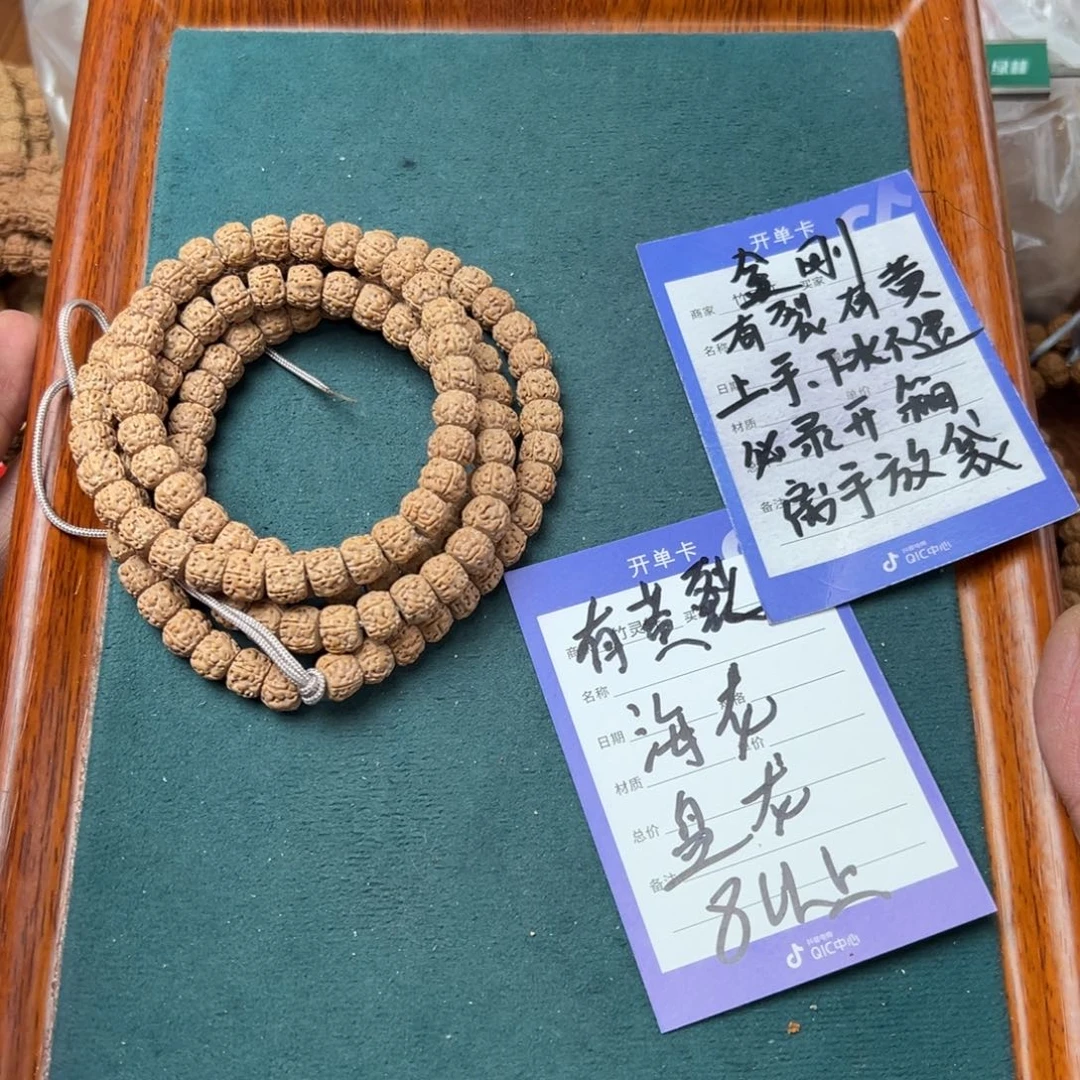 绿林
开单卡
金刚
商家 竹 买家
有裂有黄
名称
日期
上手、下水不退
单价
材质
必录开箱
备注
离手放袋
抖音电商
QIC中心
开单卡
有黄裂
商 竹灵 买
名称 格
海龙
日期 单价
材质
盘龙
总价
备注
8以上
抖音电商
QIC中心